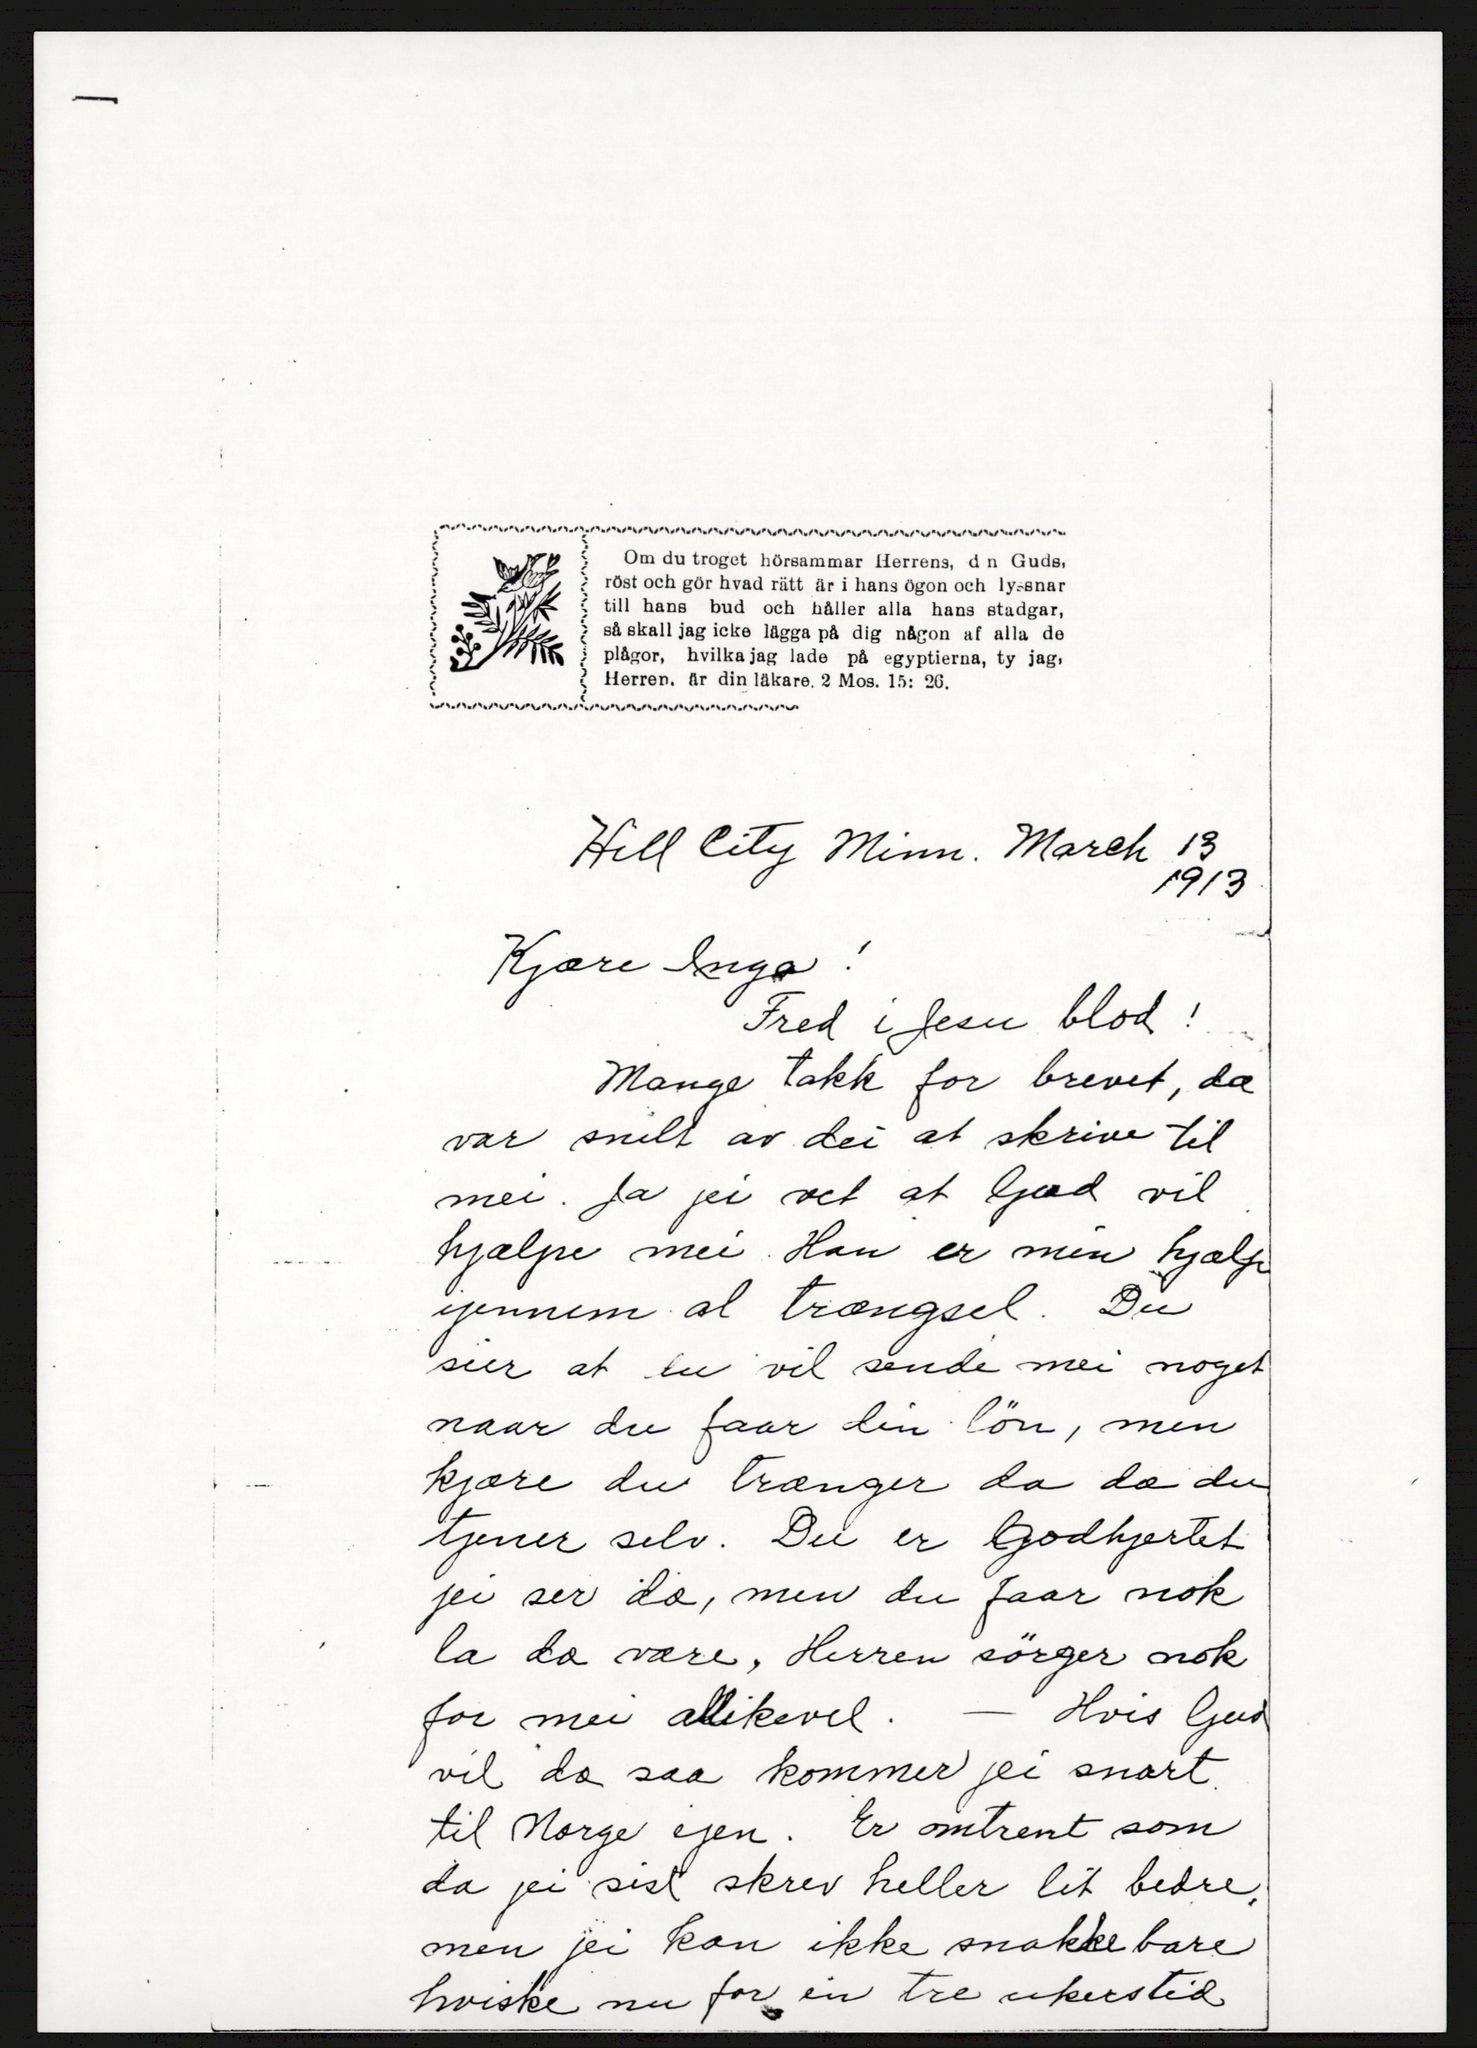 Om du troget hörsammar Herrens, d n Guds,
röst och gör hvad rätt är i hans ögon och lyssnar
till hans bud och håller alla hans stadgar,
så skall jag icke lägga på dig någon af alla de
plågor, hvilka jag lade på egyptierna, ty jag,
Herren, är din läkare. 2 Mos. 15: 26.
Hill City Minn. March 13
1913
Kjære Inga!
Fred i Jesu blod!
Mange takk for brevet, dæ
var snilt av dei at skrive til
mei. Ja jei vet at Gud vil
hjælpe mei. Han er min hjælp
ijennem al trængsel. Du
sier at du vil sende mei noget
naar du faar din lön, men
kjære du trænger da dæ du
tjener selv. Du er Godhjertet
jei ser dæ, men du faar nok
la dæ være, Herren sörger nok
for mei allikevel. — Hvis Gud
vil dæ saa kommer jei snart
til Norge igen. Er omtrent som
da jei sist skrev heller lit bedre,
men jei kan ikke snakke bare
hviske nu for en tre ukerstid